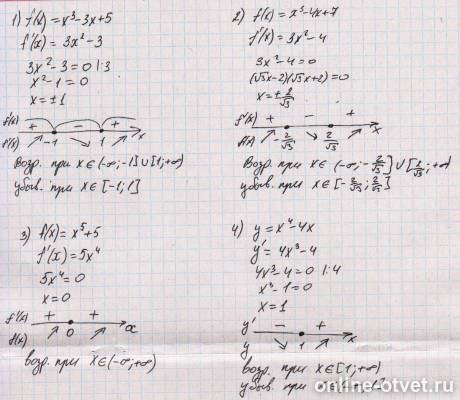 1) f(x)=x³-3x+5
f'(x)=3x²-3
3x²-3=0 |:3
x²-1=0
x=±1
f'(x) + - +
f(x) -1 1 x
Возр. при x∈(-∞;-1]∪[1;+∞)
убыв. при x∈[-1;1]
2) f(x)=x³-4x+7
f'(x)=3x²-4
3x²-4=0
(√3x-2)(√3x+2)=0
x=±2/√3
f'(x) + - +
f(x) -2/√3 2/√3 x
Возр. при x∈(-∞;-2/√3]∪[2/√3;+∞)
убыв. при x∈[-2/√3;2/√3]
3) f(x)=x⁵+5
f'(x)=5x⁴
5x⁴=0
x=0
f'(x) + +
f(x) 0 x
возр. при x∈(-∞;+∞)
4) y=x⁴-4x
y'=4x³-4
4x³-4=0 |:4
x³-1=0
x=1
y' - +
y 1 x
возр. при x∈[1;+∞)
убыв. при
online-otvet.ru